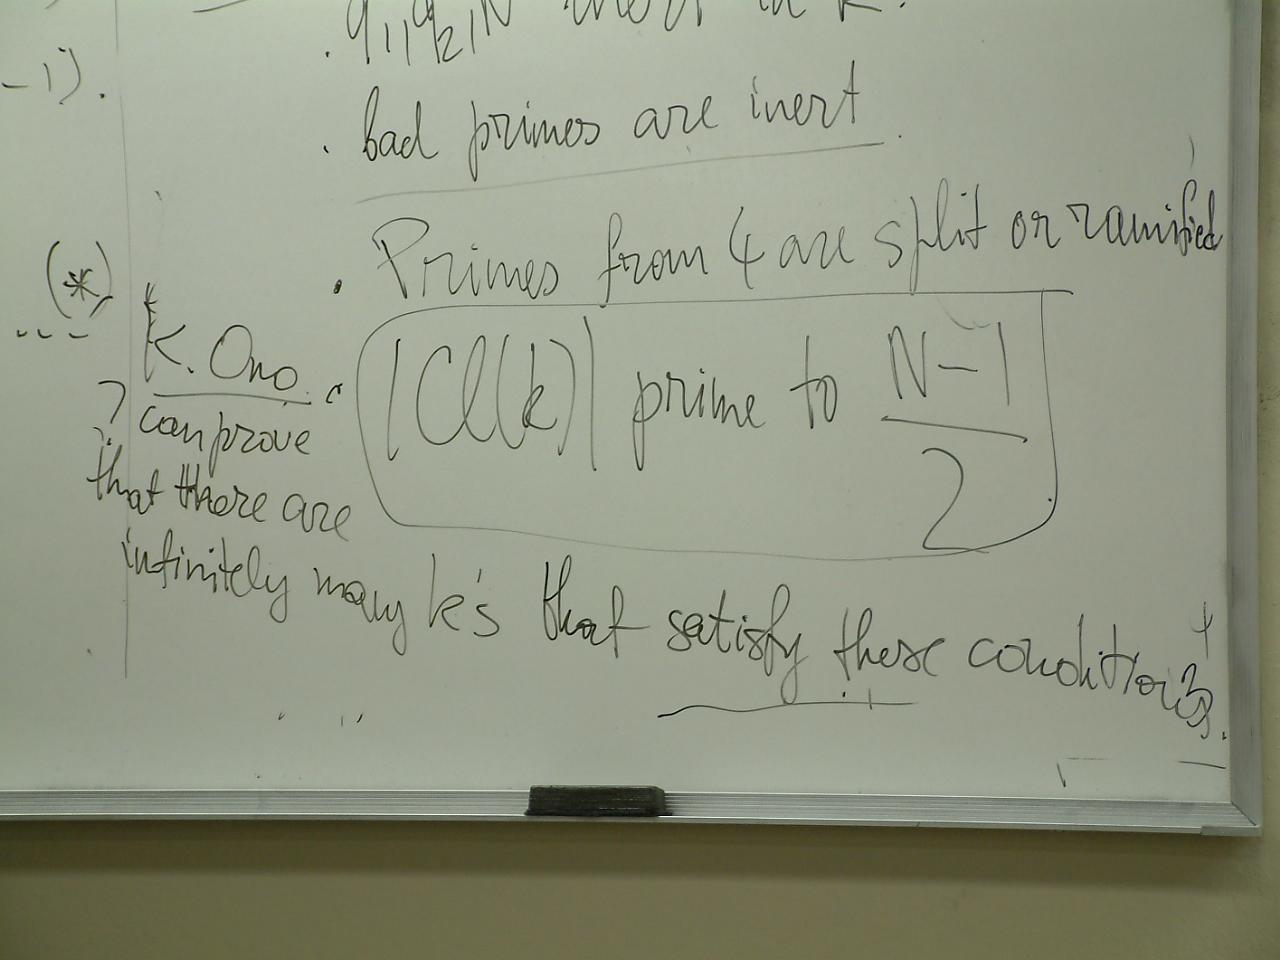 . q₁, q₂, N inert in k.
-1).
. bad primes are inert.
. Primes from 4 are split or ramified
(*)
K. Ono
|Cl(k)| prime to N-1/2
? can prove
that there are
infinitely many k's that satisfy these conditions.